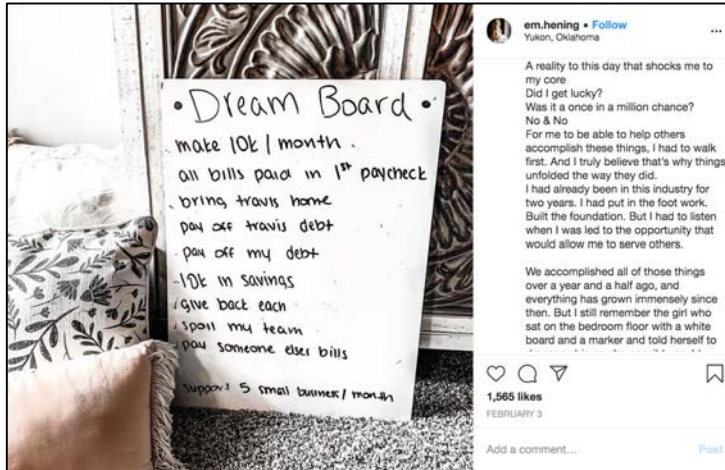 • Dream Board •
make 10k / month
all bills paid in 1st paycheck
. bring travis home
pay off travis debt
pay off my debt
10k in savings
give back each
spoil my team
pay someone elses bills
support 5 small business / month
em.hening • Follow
Yukon, Oklahoma
A reality to this day that shocks me to
my core
Did I get lucky?
Was it a once in a million chance?
No & No
For me to be able to help others
accomplish these things, I had to walk
first. And I truly believe that's why things
unfolded the way they did.
I had already been in this industry for
two years. I had put in the foot work.
Built the foundation. But I had to listen
when I was led to the opportunity that
would allow me to serve others.
We accomplished all of those things
over a year and a half ago, and
everything has grown immensely since
then. But I still remember the girl who
sat on the bedroom floor with a white
board and a marker and told herself to
1,565 likes
FEBRUARY 3
Add a comment...
Post